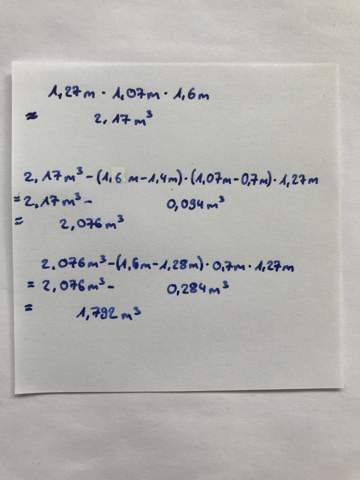 1,27m · 1,07m · 1,6m
≈ 2,17m³
2,17m³-(1,6m-1,4m)·(1,07m-0,7m)·1,27m
=2,17m³- 0,094m³
= 2,076m³
2,076m³-(1,6m-1,28m)·0,7m·1,27m
= 2,076m³- 0,284m³
= 1,792m³